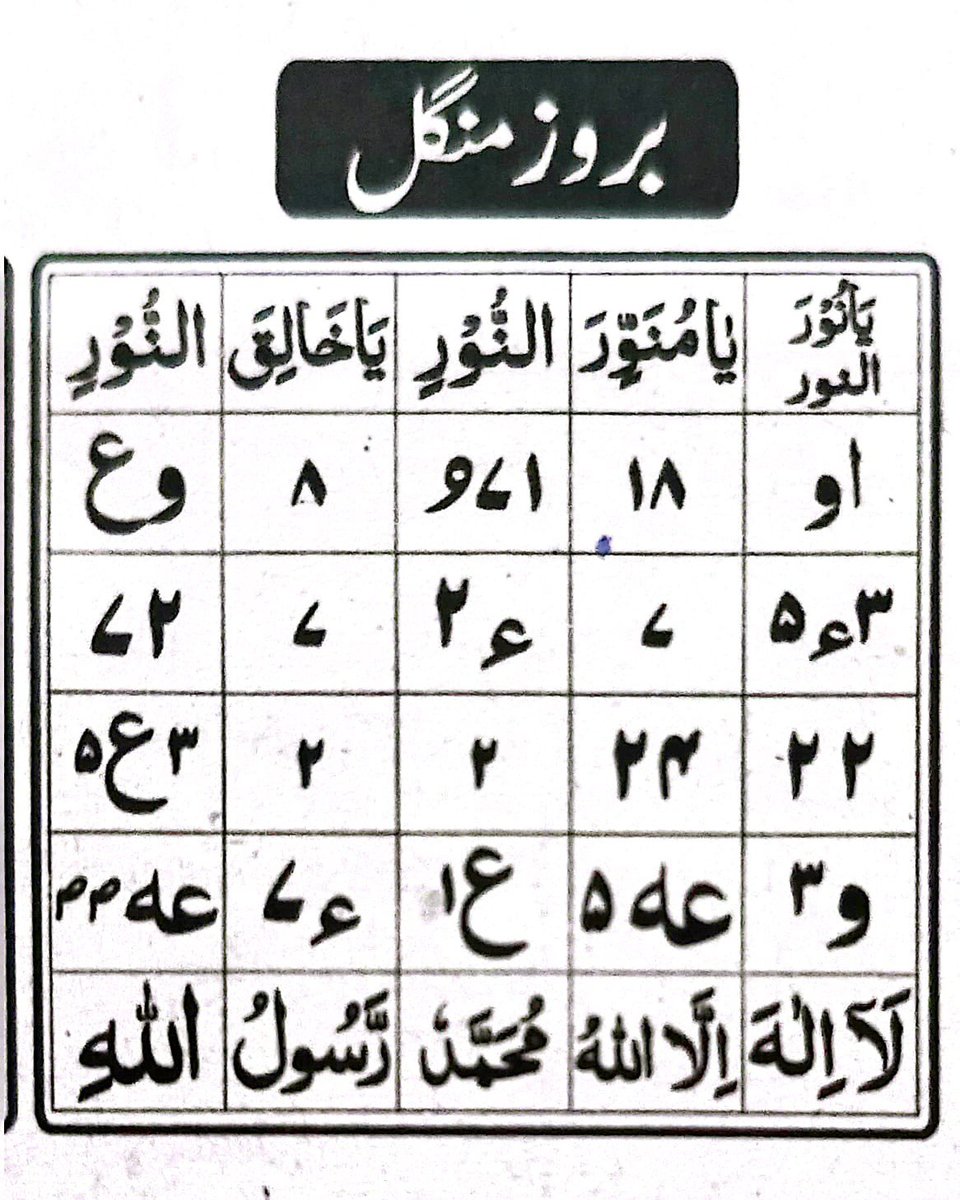 بروز منگل
یَانُوْرَ النور یَا مُنَوِّرَ النُّوْرِ یَا خَالِقَ النُّوْرِ
او ۱۸ ۱۷و ۸ وع
۳ء۵ ۷ ء۲ ۷ ۲۷
۲۲ ۲۴ ۲ ۲ ۳ع۵
و۳ عہ۵ ع۱ ء۷ عہ۲۲
لَآ اِلٰہَ اِلَّا اللهُ مُحَمَّدٌ رَّسُولُ اللهِ